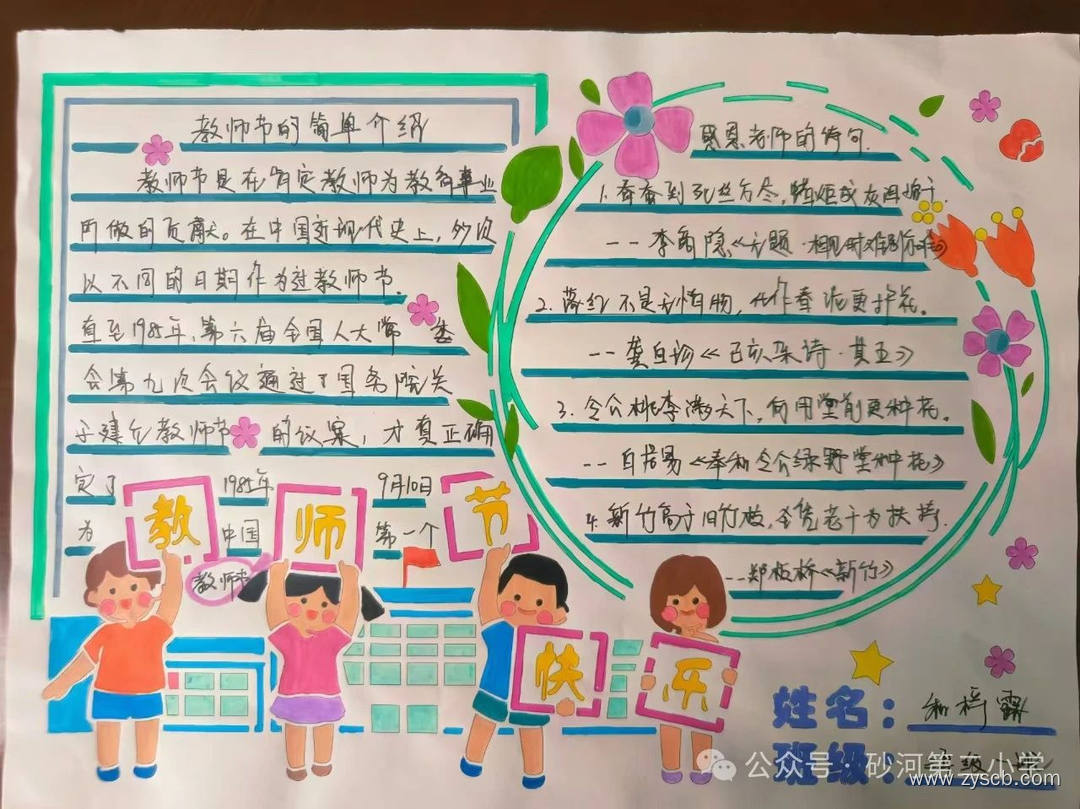 教师节的简单介绍
教师节旨在肯定教师为教育事业
所做的贡献。在中国近现代史上,多次
以不同的日期作为过教师节.
直至1985年、第六届全国人大常委
会第九次会议通过了国务院关
于建立教师节的议案,才真正确
定了1985年9月10日
为中国第一个
教师节
教师节
快乐
感恩老师的诗句.
1.春蚕到死丝方尽,蜡炬成灰泪始干
--李商隐《无题·相见时难别亦难》
2.落红不是无情物,化作春泥更护花。
--龚自珍《己亥杂诗·其五》
3.令公桃李满天下,何用堂前更种花。
--白居易《奉和令公绿野堂种花》
4.新竹高于旧竹枝,全凭老干为扶持.
--郑板桥《新竹》
姓名:
班级:
公众号·砂河第二小学
www.zyscb.com